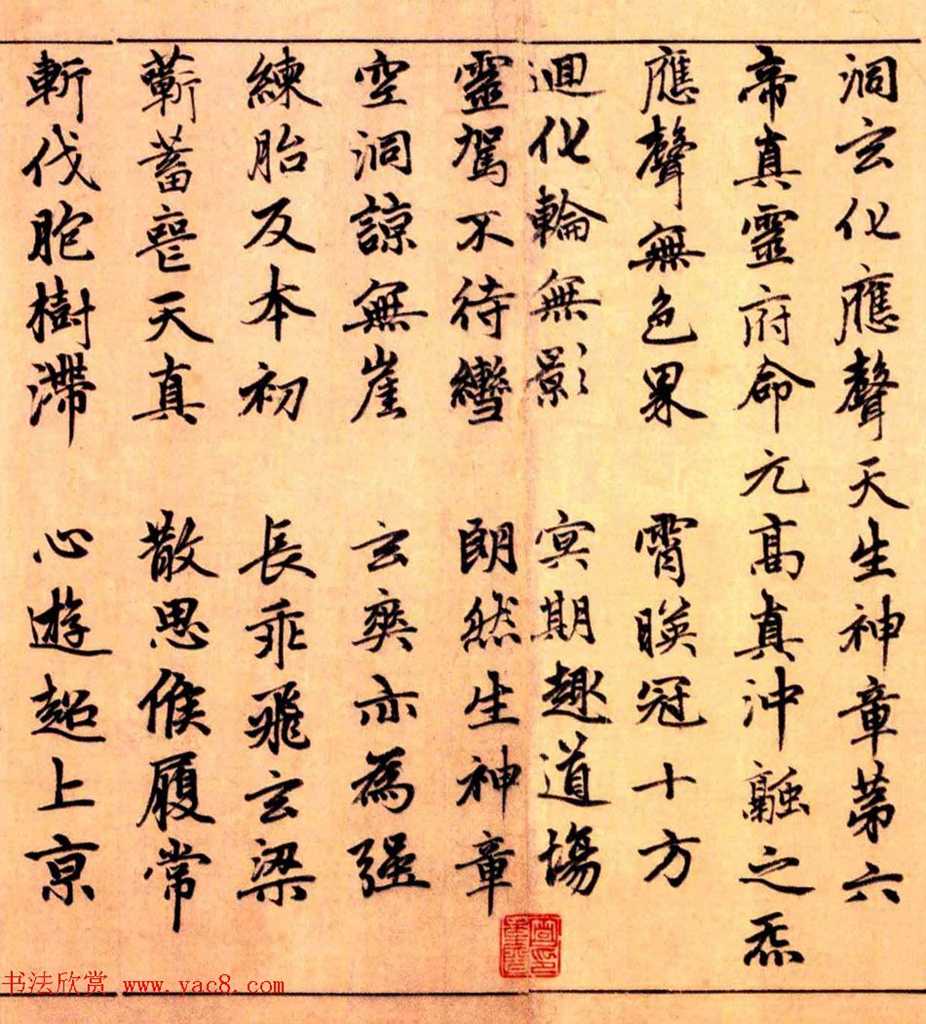 洞玄化應聲天生神章第六
帝真靈府命元高真沖融之炁
應聲無色界 霄暎冠十方
迴化輪無影 冥期趣道場
靈駕不待轡 朗然生神章
空洞諒無崖 玄爽亦為强
練胎反本初 長乖飛玄梁
蘄蓄喪天真 散思候履常
斬伐胞樹滯 心遊超上京
书法欣赏 www.yac8.com